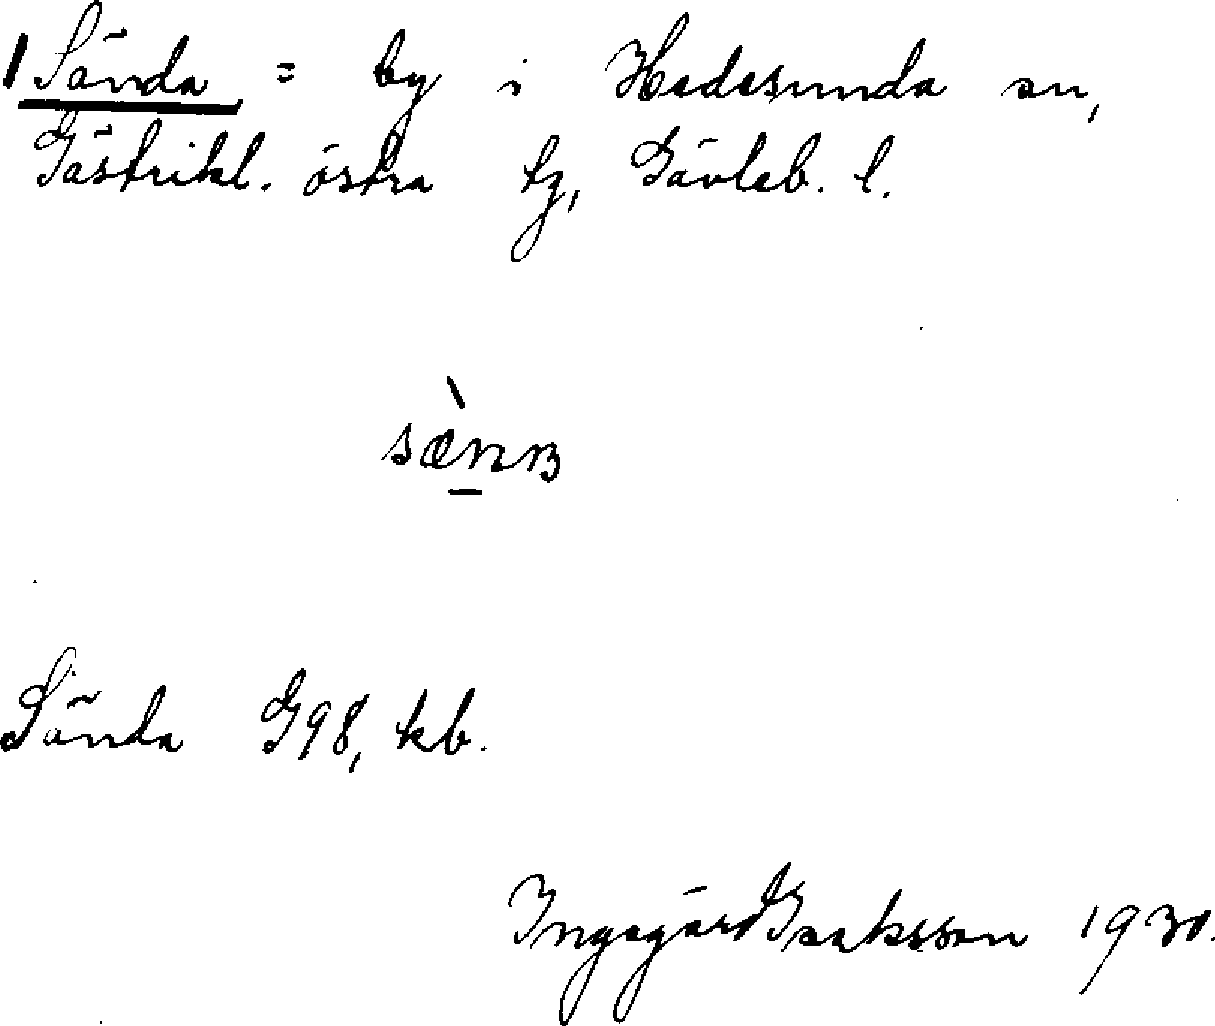 Sända = by i Hedesunda sn,
Gästrikl. östra tg, Gävleb. l.
Sända G98, kb.
Ingegärd Isaksson 1930.